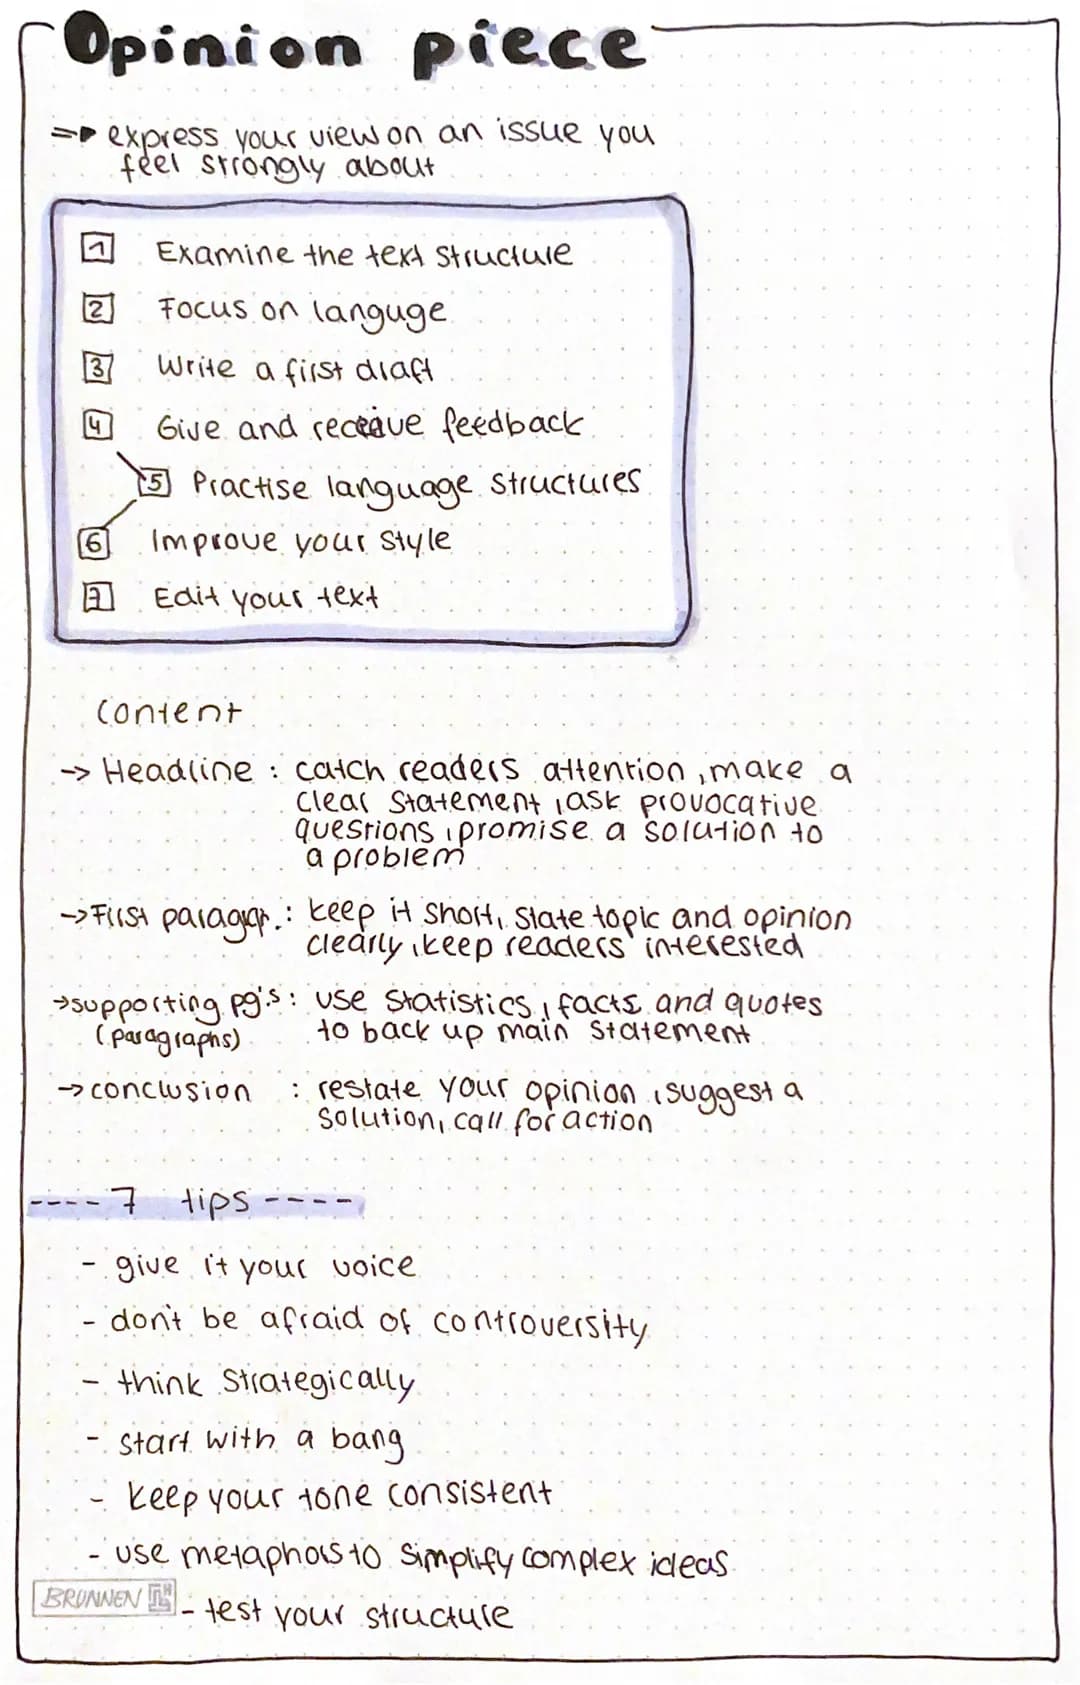 Opinion piece
=> express your view on an issue you
feel strongly about
1 Examine the text structure
2 Focus on languge
3 Write a first draft
4 Give and receive feedback
5 Practise language structures
6 Improve your style
7 Edit your text
Content
-> Headline : catch readers attention, make a
clear statement, ask provocative
questions, promise a solution to
a problem
-> First paragr.: keep it short, state topic and opinion
clearly, keep readers interested
-> supporting pg's: use statistics, facts and quotes
(paragraphs) to back up main statement
-> conclusion : restate your opinion, suggest a
solution, call for action
---- 7 tips ----
- give it your voice
- don't be afraid of controversity
- think strategically
- start with a bang
- keep your tone consistent
- use metaphors to simplify complex ideas
BRUNNEN - test your structure